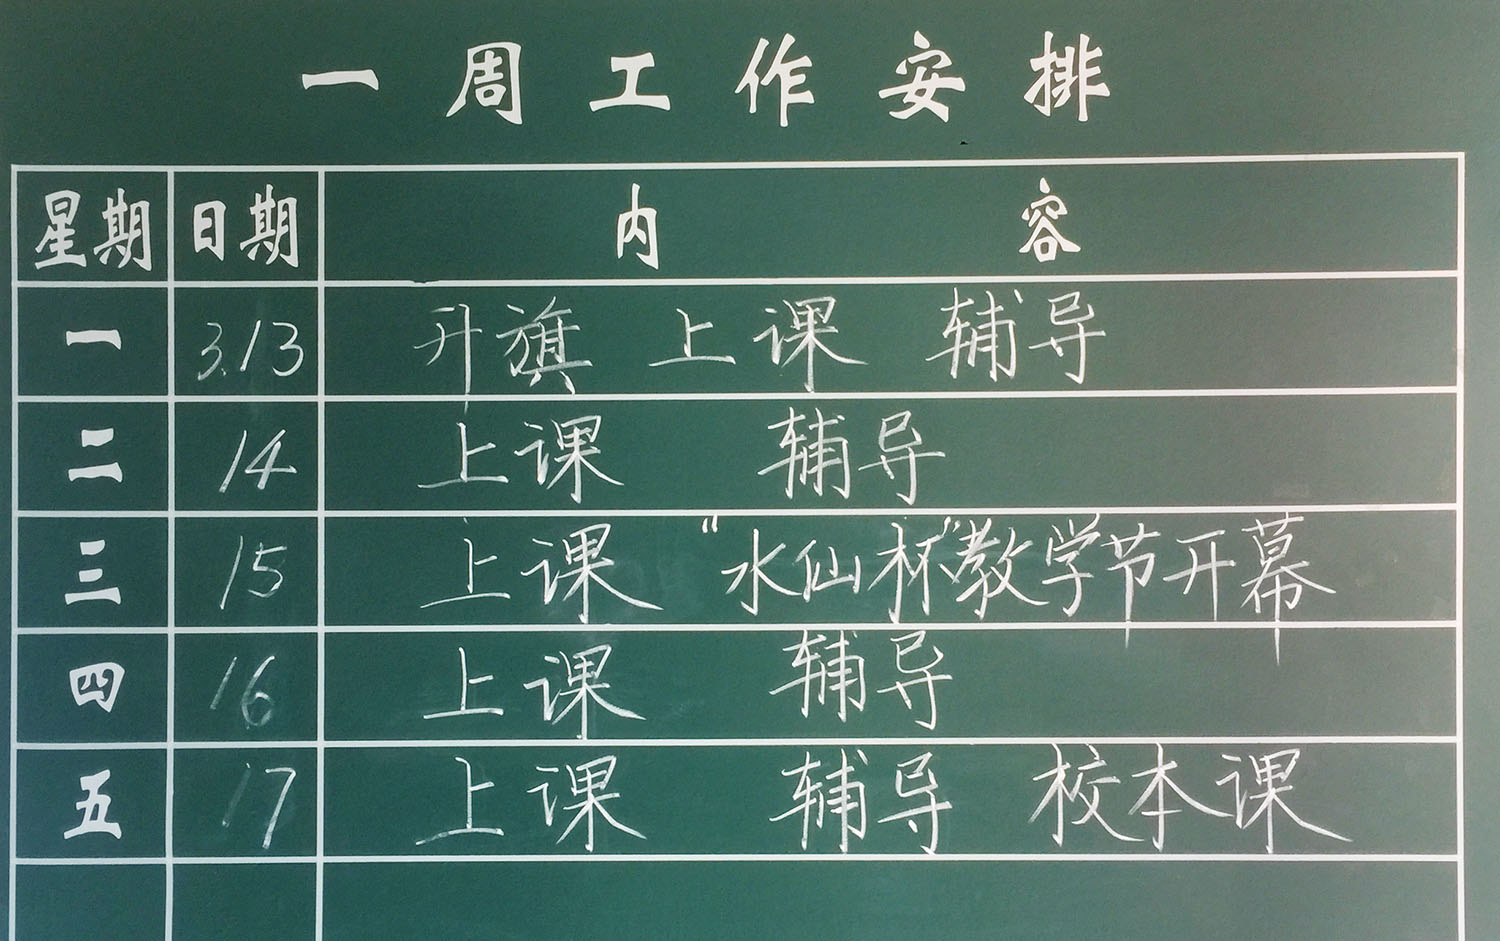 一周工作安排
星期 日期 内容
一 3.13 升旗 上课 辅导
二 14 上课 辅导
三 15 上课 "水仙杯"教学节开幕
四 16 上课 辅导
五 17 上课 辅导 校本课